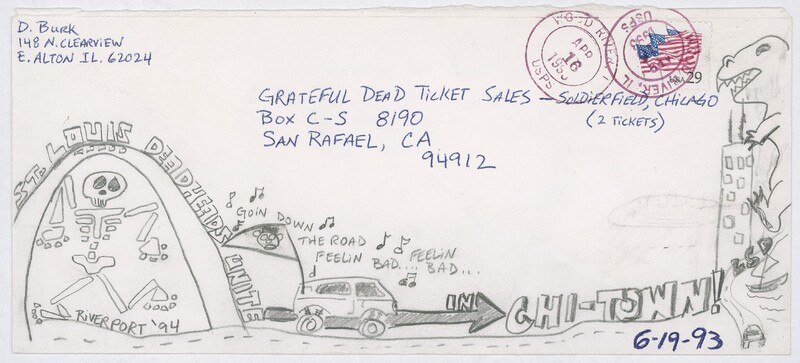 D. Burk
148 N. Clearview
E. Alton IL. 62024
WOOD RIVER
APR
16
1993
USPS
29
Grateful Dead Ticket Sales – Soldier Field, Chicago
Box C-S 8190
(2 Tickets)
San Rafael, CA
94912
ST. LOUIS DEADHEADS UNITE
GOIN DOWN
THE ROAD
FEELIN
BAD....
FEELIN
BAD...
RIVERPORT '94
IN
CHI-TOWN!
LSD
6-19-93